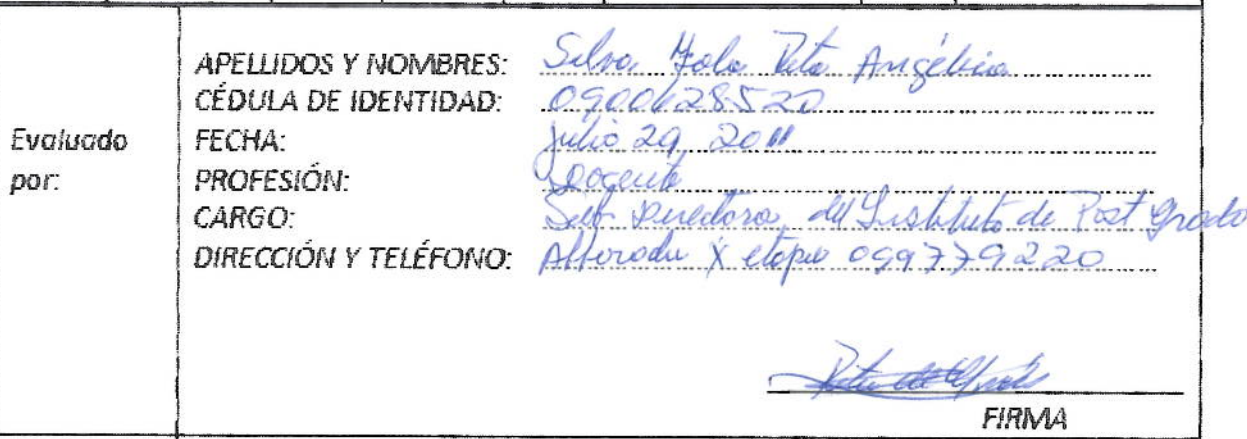 APELLIDOS Y NOMBRES: Silva Rita Angélica
CÉDULA DE IDENTIDAD: 0900628520
Evaluado
FECHA: julio 29 2011
por:
PROFESIÓN: Docente
CARGO: Sub Directora del Instituto de Post Grado
DIRECCIÓN Y TELÉFONO: Alborada X etapa 099779220
FIRMA